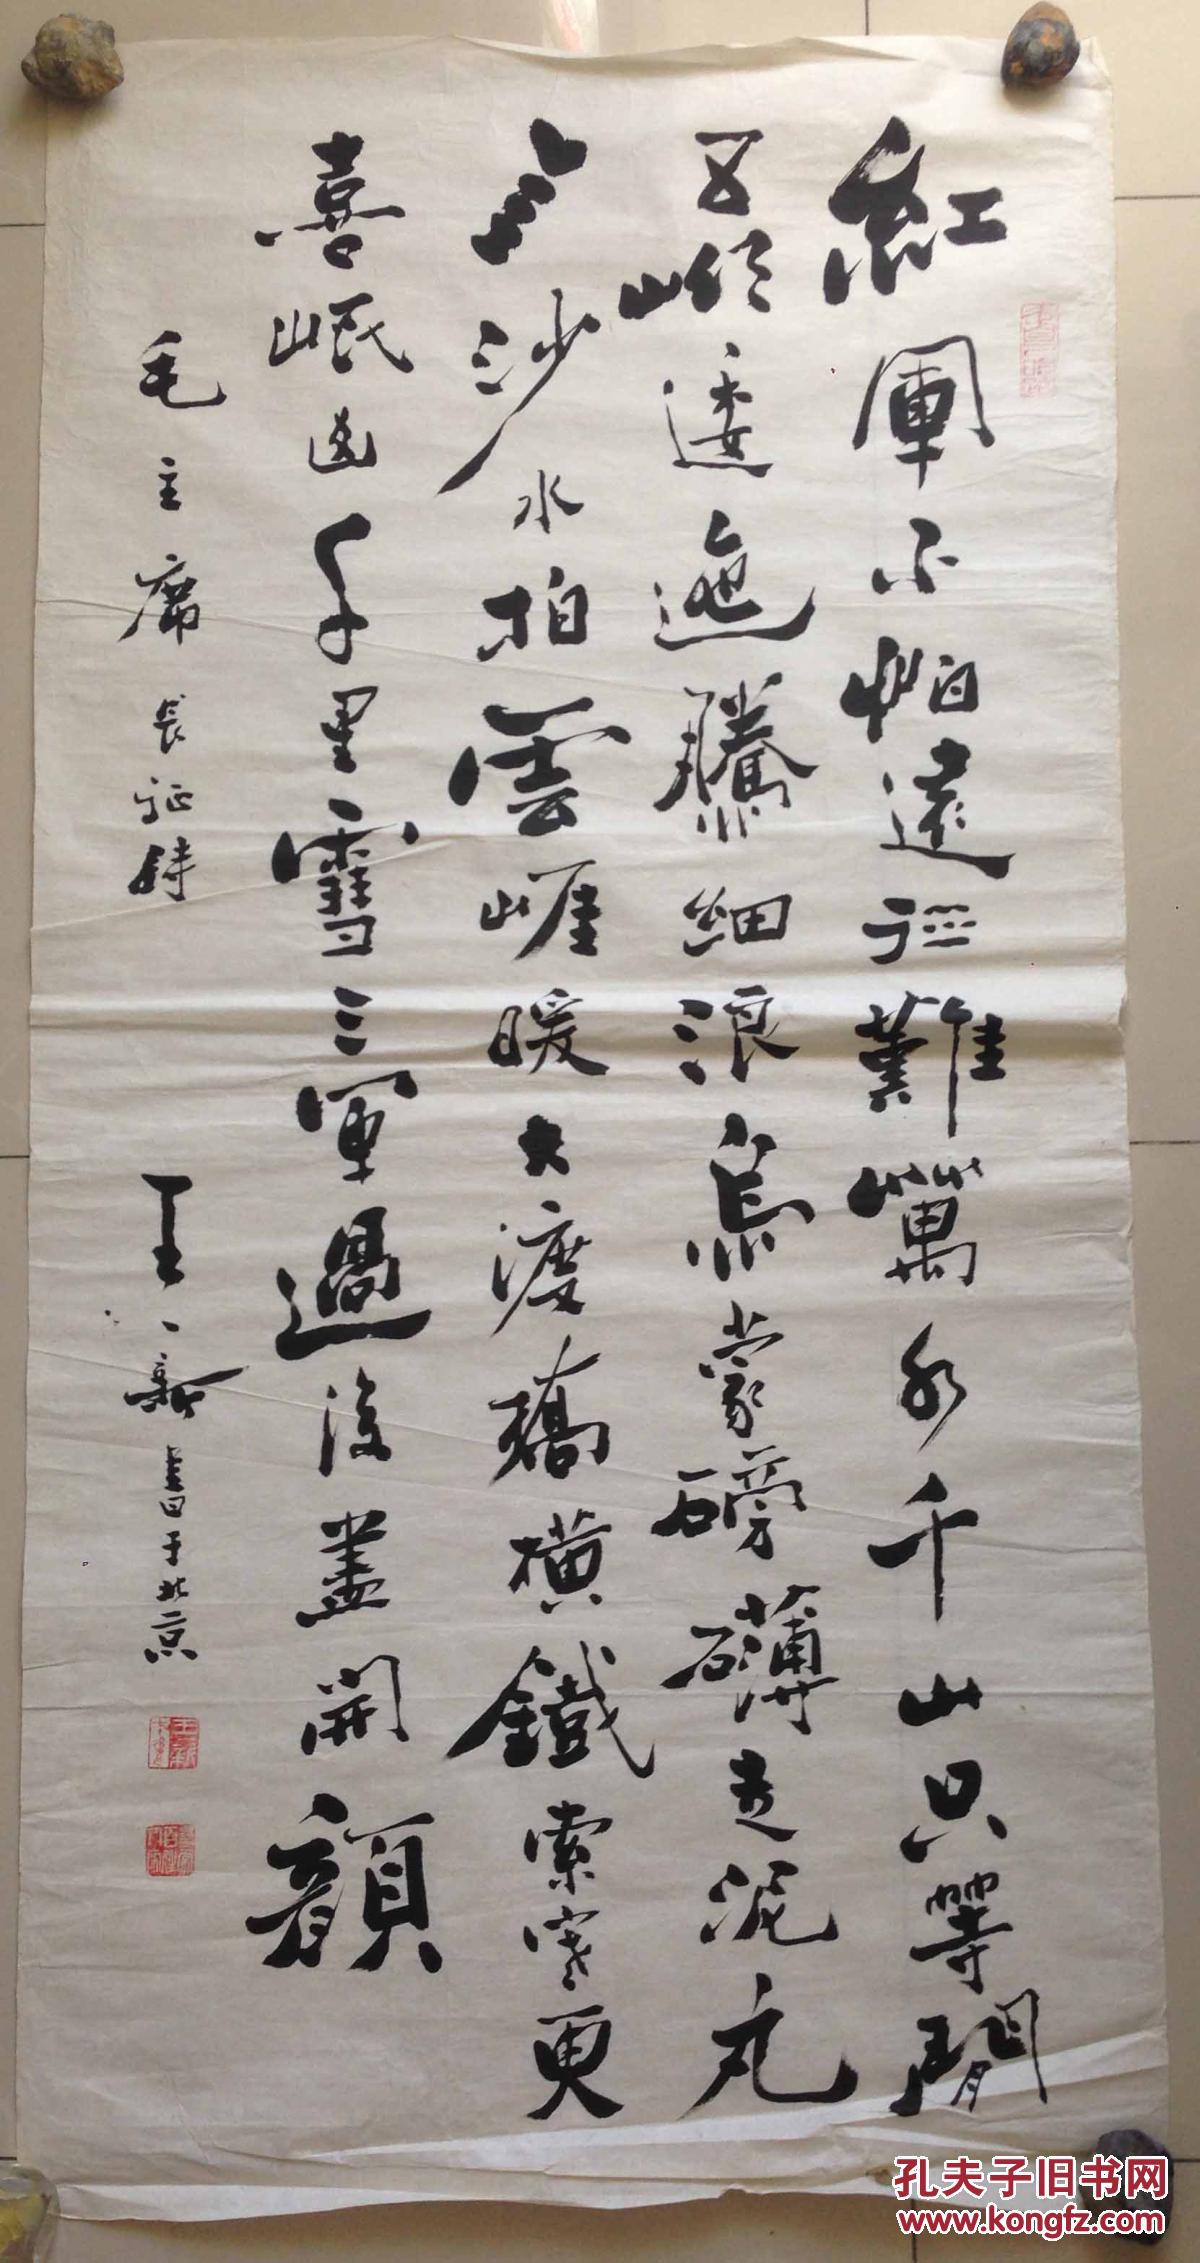 紅軍不怕遠征難萬水千山只等閒
五嶺逶迤騰細浪烏蒙磅礴走泥丸
金沙水拍雲崖暖大渡橋橫鐵索寒更
喜岷山千里雪三軍過後盡開顔
毛主席長征詩
王一新書于北京
孔夫子旧书网
www.kongfz.com